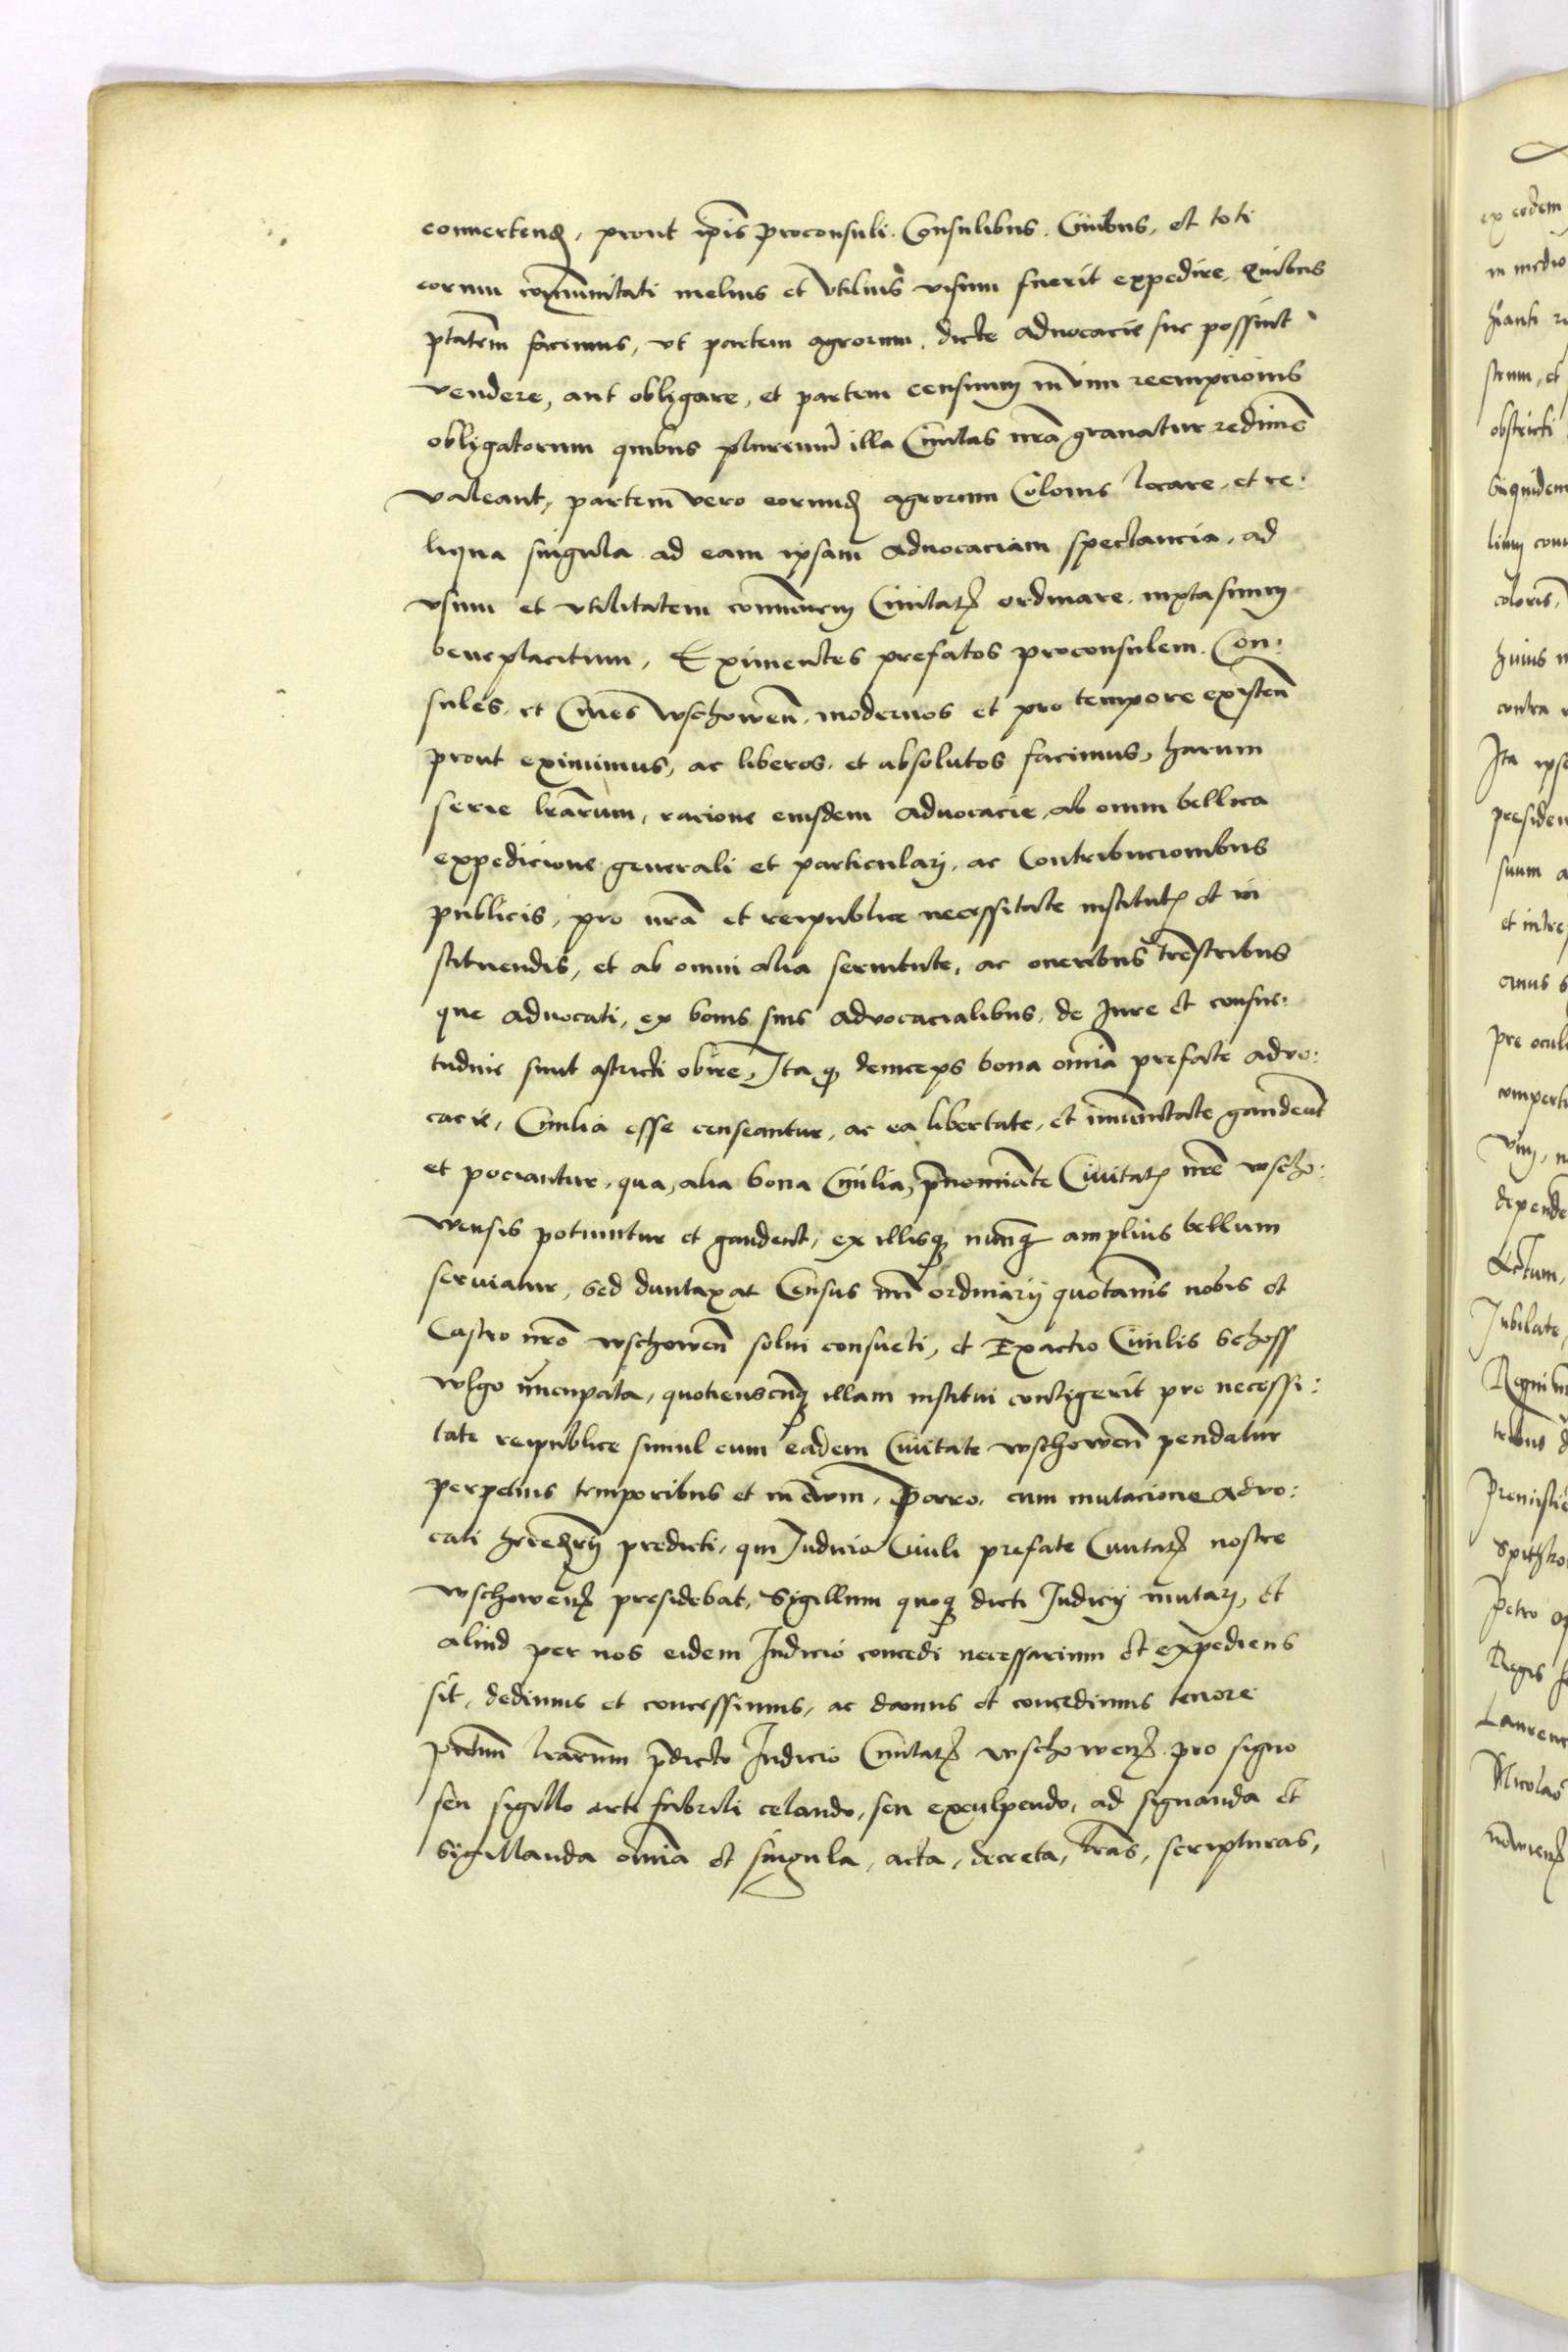 convertend, prout ipīs proconsuli. Consulibus. Civibus, et toti
eorum cōmunitati melius et utilius visum fuerit expedire, Quibus
ptātem facimus, ut partem agrorum. dicte advocacie sue possint
vendere, aut obligare, et partem censuum in vim reempcionis
obligatorum quibus plurimū illa Civitas nrā gravatur redime
valeant, partem vero eorund agrorum Colonis locare, et re:
liqua singula ad eam ipsam advocaciam spectancia, ad
usum et utilitatem communem Civitatꝭ ordinare. iuxta suum
beneplacitum, Eximentes prefatos proconsulem. Con:
sules, et Cives wschowen̄, modernos et pro tempore existen̄
prout eximimus, ac liberos. et absolutos facimus, harum
serie lrārum, racione eiusdem advocacie, ab omni bellica
expedicione generali et particulari, ac Contribucionibus
publicis, pro nrā et reipublice necessitate institutꝭ et in
stituendis, et ab omni alia servitute, ac oneribus trēstribus
que advocati, ex bonis suis advocacialibus, de Iure et consue:
tudine sunt astricti obire, Ita ꝙ deinceps bona omīa prefate advo:
cacie, Civilia esse censeantur, ac ea libertate, et imunitate gaudeant
et pociantur, qua, alia bona Civilia, prēnomīate Civitatꝭ nrē wscho:
wensis potiuntur et gaudent, ex illisqꝫ nunqꝫ amplius bellum
serviatur, sed duntaxat Census nrī ordinarij quotannis nobis et
Castro nrō wschowen̄ solvi consueti, et Exactio Civilis Schoss
wlgo nuncupata, quotienscunqꝫ illam institui contigerit pro necessi:
tate reipublice simul cum eadem Civitate wschowen̄ pendatur
perpetuis temporibus et in ewm, Porro. cum mutacione advo:
cati hereditarij predicti, qui Iudicio Civili prefate Civitatꝭ nostre
wschowenꝭ presidebat, Sigillum quoqꝫ dicti Iudicij mutari, et
aliud per nos eidem Iudicio concedi necessarium et expediens
sit, dedimus et concessimus, ac damus et concedimus tenore
pn̄tium lrārum p̄dicto Iudicio Civitatꝭ wschowenꝭ pro signo
seu sigillo arte fabrili celando, seu exculpendo, ad signanda et
sigillanda omīa et singula, acta, decreta, lrās, scripturas,